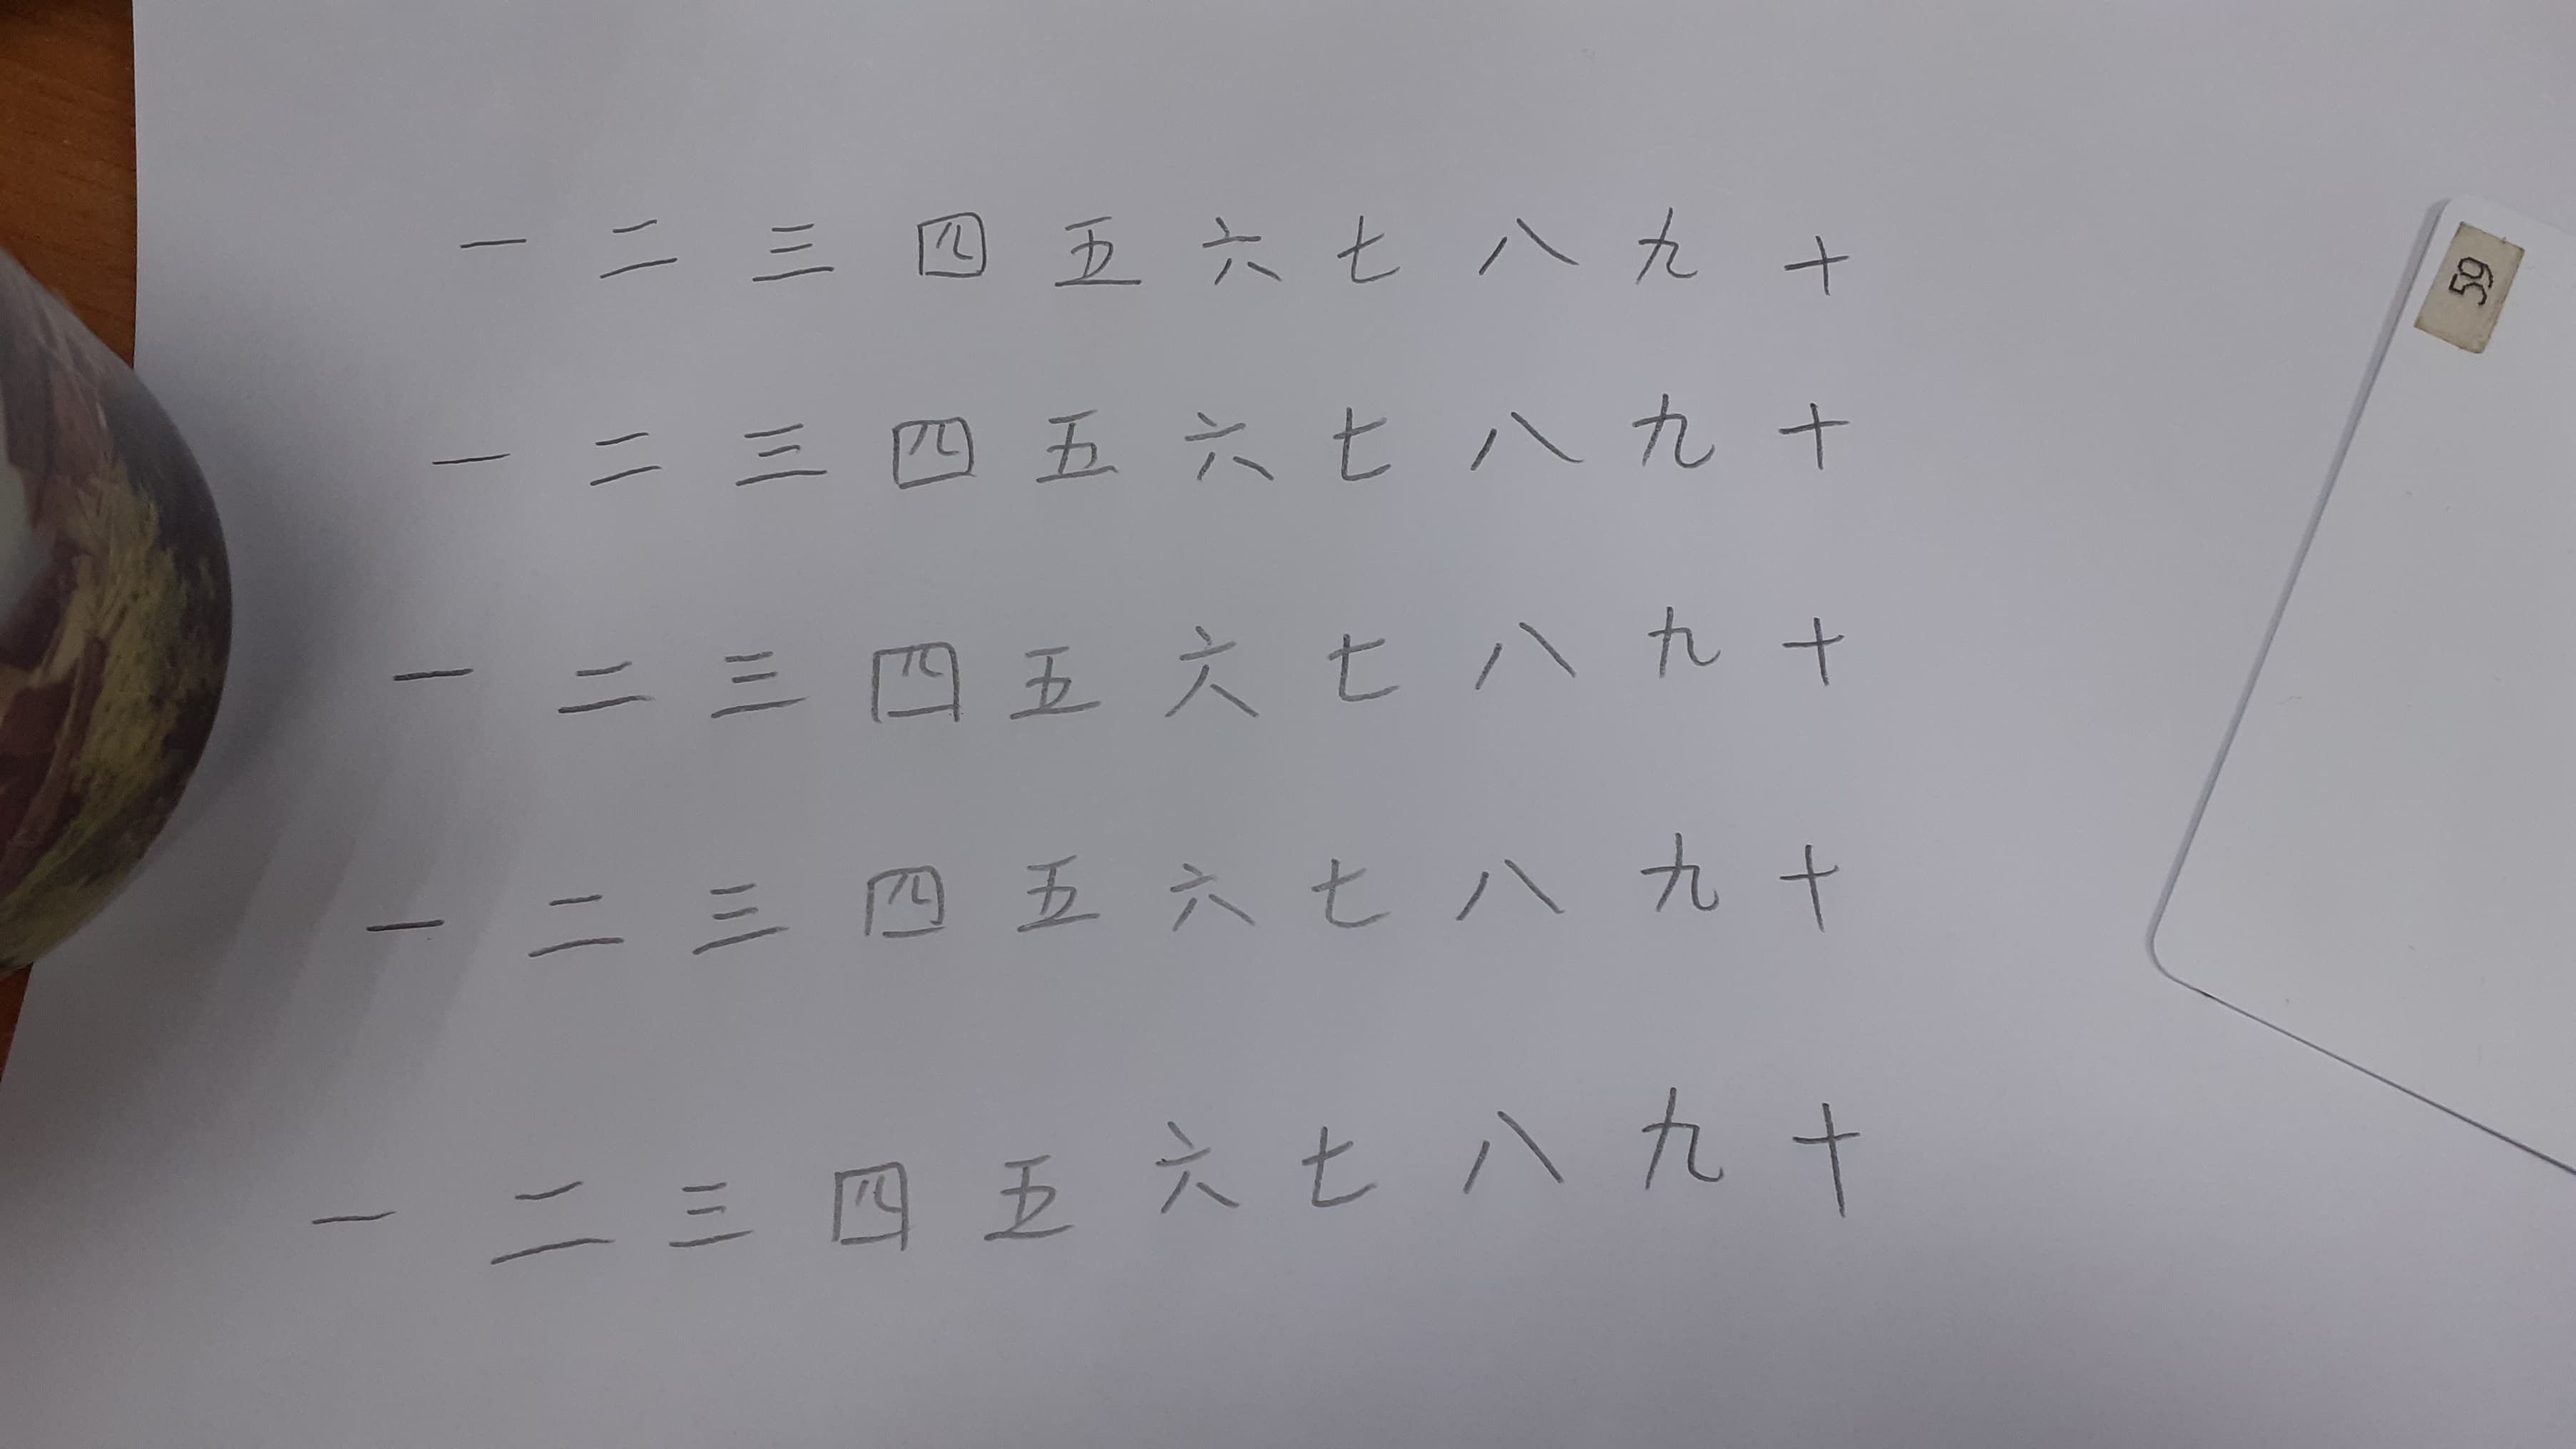 一 二 三 四 五 六 七 八 九 十
一 二 三 四 五 六 七 八 九 十
一 二 三 四 五 六 七 八 九 十
一 二 三 四 五 六 七 八 九 十
一 二 三 四 五 六 七 八 九 十
59